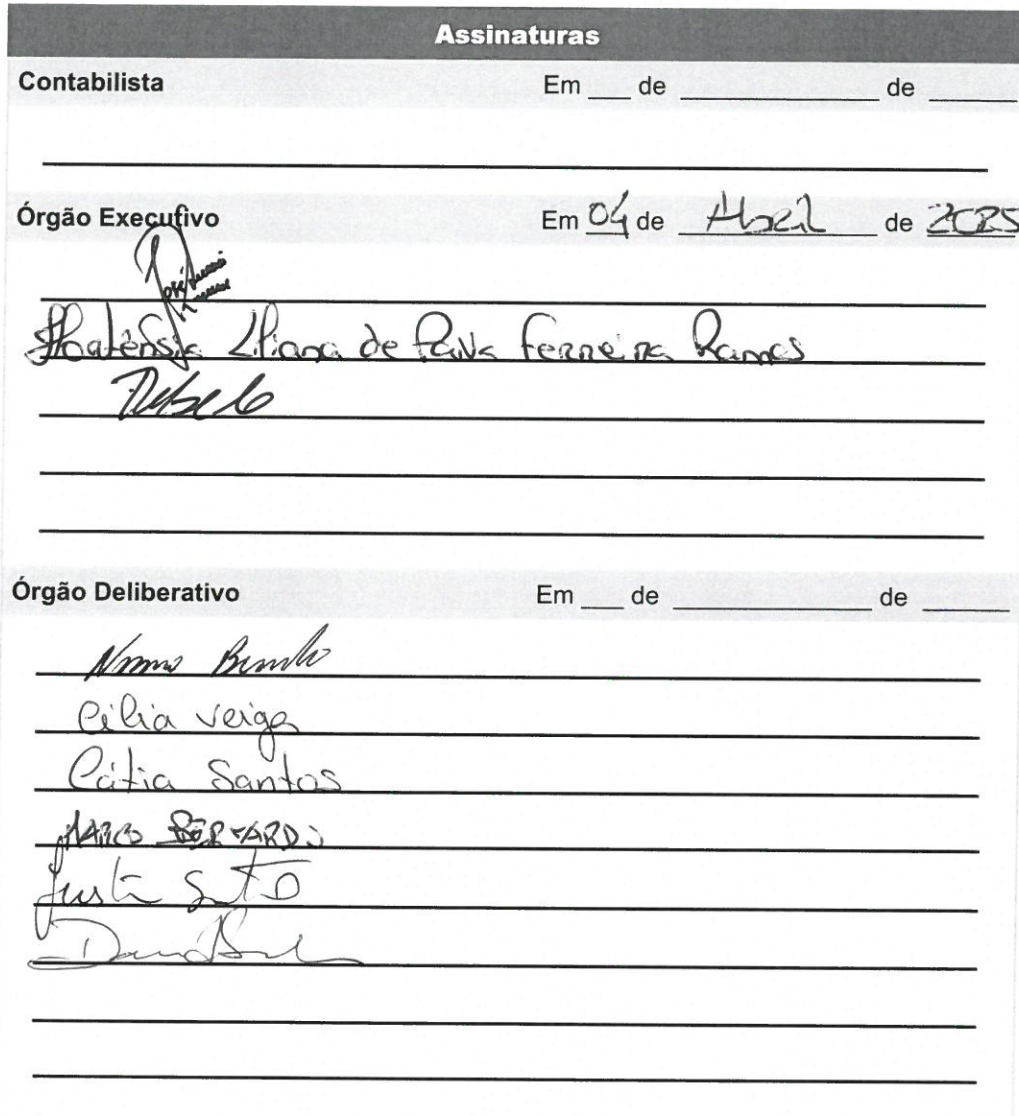 Assinaturas
Contabilista Em ___ de ______________ de ______
Órgão Executivo Em 04 de Abril de 2025
José
Hortênsia Liliana de Paiva Ferreira Ramos
Rebelo
Órgão Deliberativo Em ___ de ______________ de ______
Nuno
Célia Veiga
Cátia Santos
MARCO BERNARDO